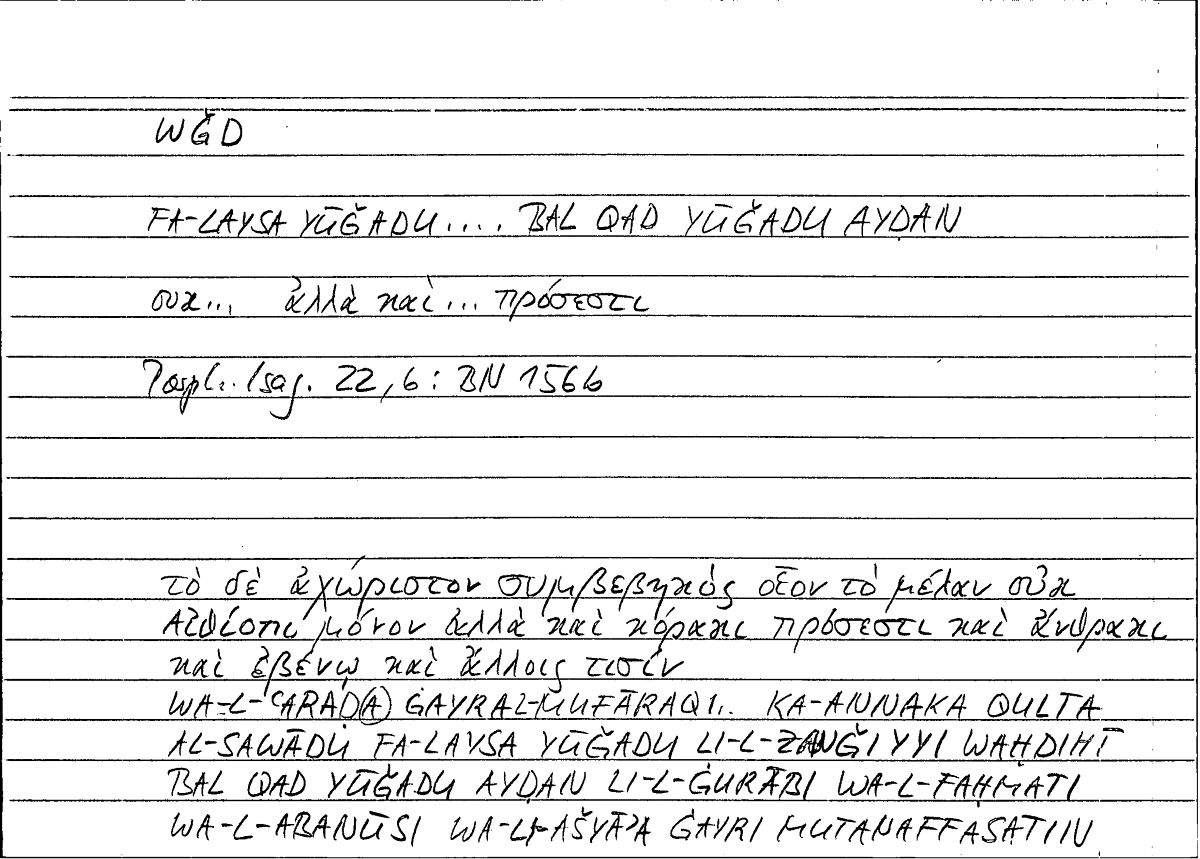 WǦD
FA-LAYSA YŪǦADU.... BAL QAD YŪǦADU AYḌAN
ουκ... ἀλλὰ καὶ... πρόσεστι
Porph. Isag. 22,6: BN 156b
τὸ δὲ ἀχώριστον συμβεβηκός οἷον τὸ μέλαν οὐκ
Αἰθίοπι μόνον ἀλλὰ καὶ κόρακι πρόσεστι καὶ ἄνθρακι
καὶ ἐβένῳ καὶ ἄλλοις τισίν
WA-L-ʿARAḌ(A) ĠAYRAL-MUFĀRAQI.. KA-ANNAKA QULTA
AL-SAWĀDU FA-LAYSA YŪǦADU LI-L-ZANǦIYYI WAḤDIHĪ
BAL QAD YŪǦADU AYḌAN LI-L-ĠURĀBI WA-L-FAḤMATI
WA-L-ABANŪSI WA-LI-AŠYĀʾA ĠAYRI MUTANAFFASATIN